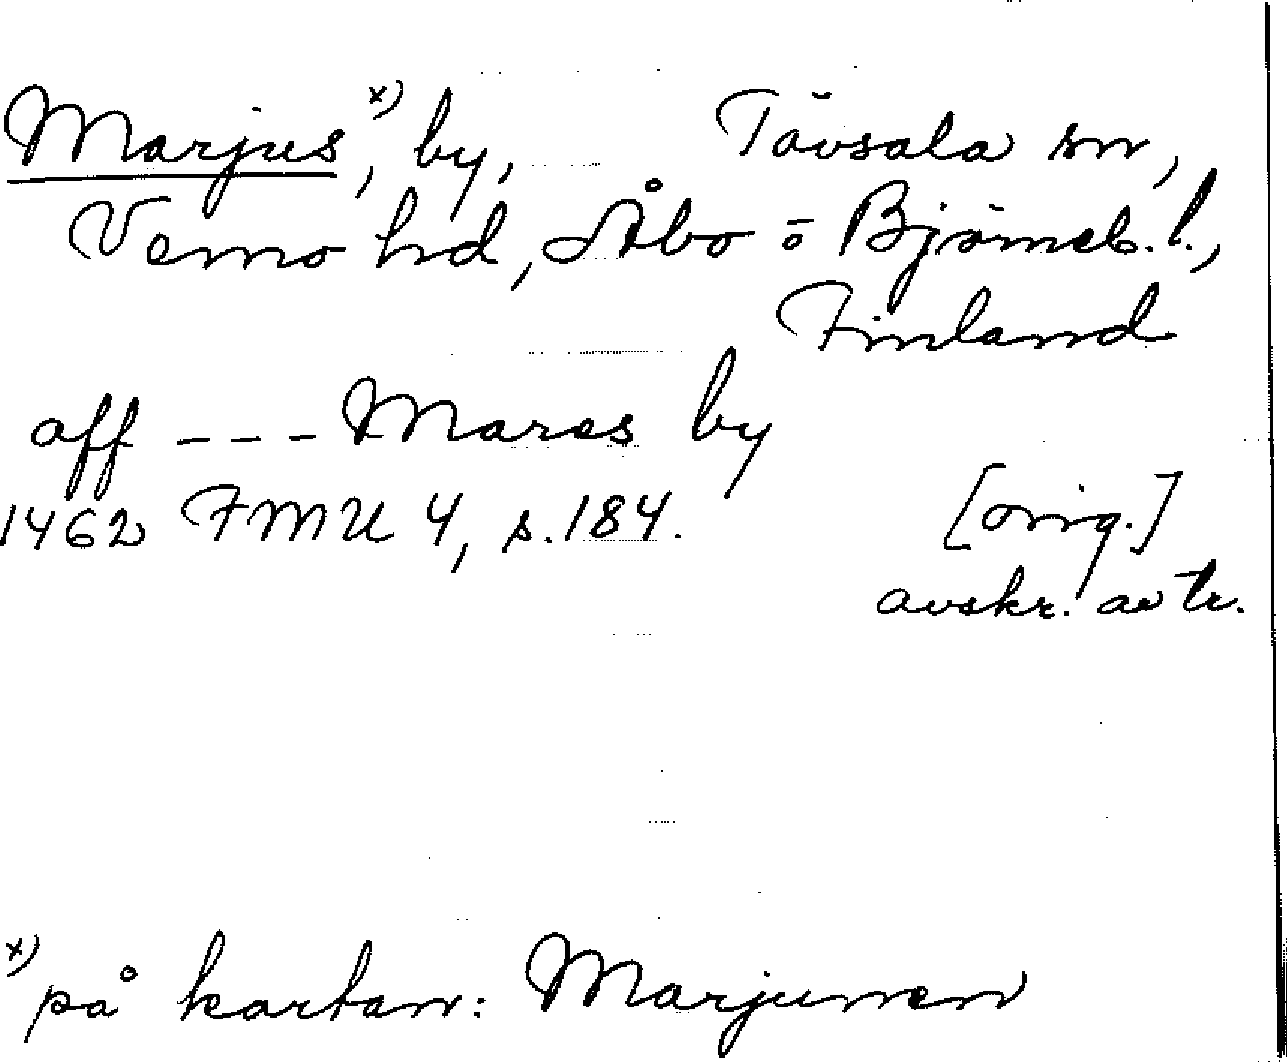 Marjus x), by, Tövsala sn,
Vemo hd, Åbo o Björneb. l.,
Finland
aff --- Mares by
1462 FMU 4, s. 184. [orig.]
avskr. av tr.
x) på kartan: Marjunen